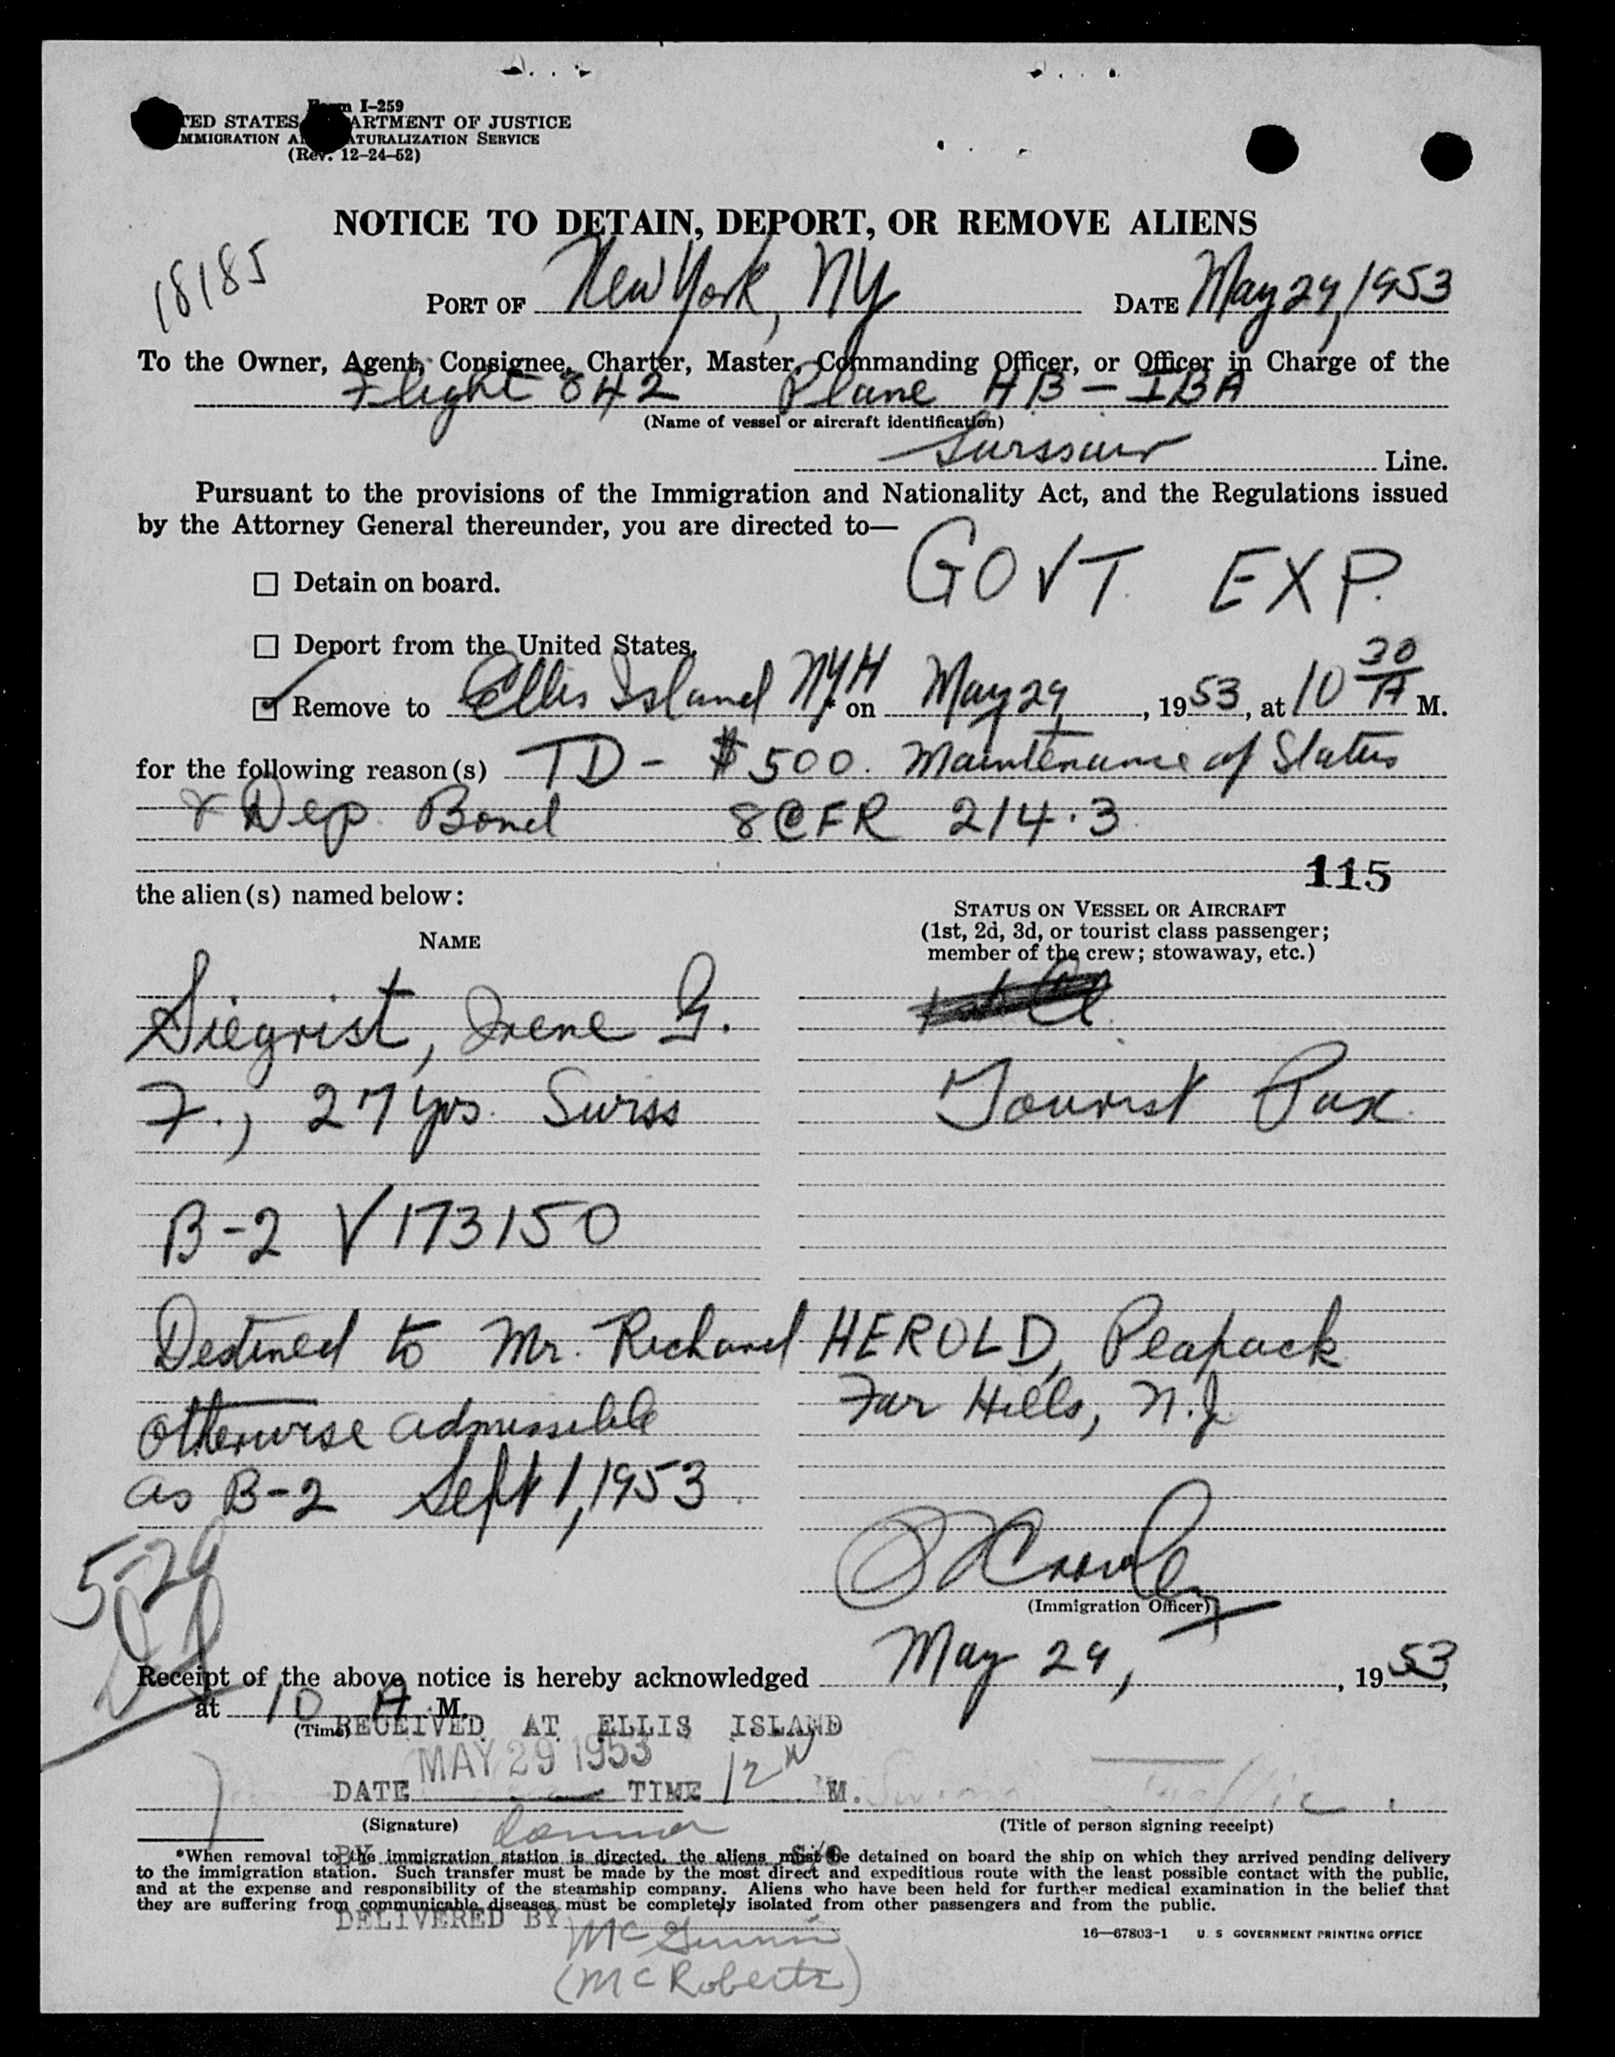 Form I-259
UNITED STATES DEPARTMENT OF JUSTICE
IMMIGRATION AND NATURALIZATION SERVICE
(Rev. 12-24-52)
NOTICE TO DETAIN, DEPORT, OR REMOVE ALIENS
18185
PORT OF New York, NY DATE May 29, 1953
To the Owner, Agent, Consignee, Charter, Master, Commanding Officer, or Officer in Charge of the
Flight 842 Plane HB-IBA
(Name of vessel or aircraft identification)
Swissair Line.
Pursuant to the provisions of the Immigration and Nationality Act, and the Regulations issued
by the Attorney General thereunder, you are directed to—
GOVT. EXP.
☐ Detain on board.
☐ Deport from the United States.
☑ Remove to Ellis Island NYH * on May 29, 1953, at 10 30 A M.
for the following reason(s) TD - $500. Maintenance of Status
& Dep. Bond 8 CFR 214.3
115
the alien(s) named below:
NAME
STATUS ON VESSEL OR AIRCRAFT
(1st, 2d, 3d, or tourist class passenger;
member of the crew; stowaway, etc.)
Siegrist, Irene G.
F., 27 yrs. Swiss Tourist Pax.
B-2 V173150
Destined to Mr. Richard HEROLD, Peapack
Far Hills, N.J.
otherwise admissible
as B-2 Sept 1, 1953
5-29
Crowley
(Immigration Officer)
Receipt of the above notice is hereby acknowledged May 29, 1953,
at 10 A M.
(Time)
RECEIVED AT ELLIS ISLAND
MAY 29 1953
DATE TIME 12 N M.
(Signature) (Title of person signing receipt)
BY
*When removal to the immigration station is directed, the aliens must be detained on board the ship on which they arrived pending delivery
to the immigration station. Such transfer must be made by the most direct and expeditious route with the least possible contact with the public,
and at the expense and responsibility of the steamship company. Aliens who have been held for further medical examination in the belief that
they are suffering from communicable diseases must be completely isolated from other passengers and from the public.
DELIVERED BY McGinnis
(McRoberts)
16—67803-1 U. S GOVERNMENT PRINTING OFFICE